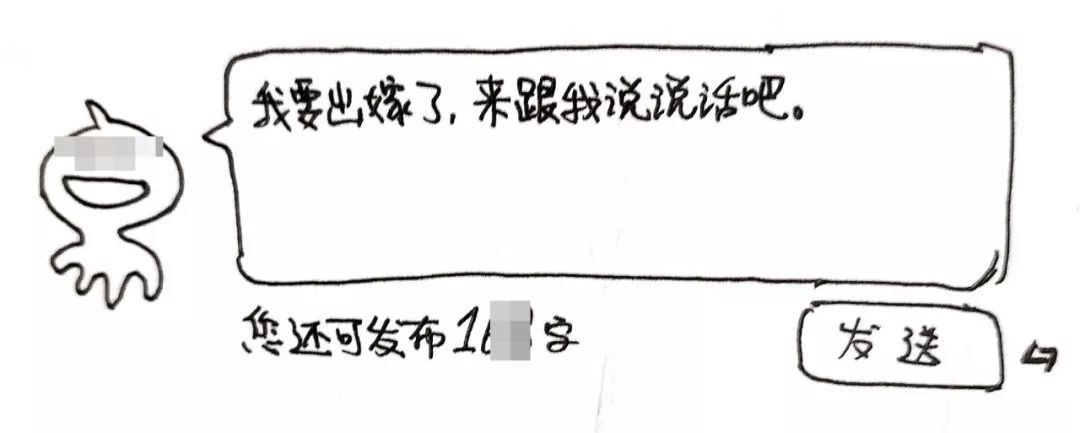 我要出嫁了，来跟我说说话吧。
您还可发布1字
发送